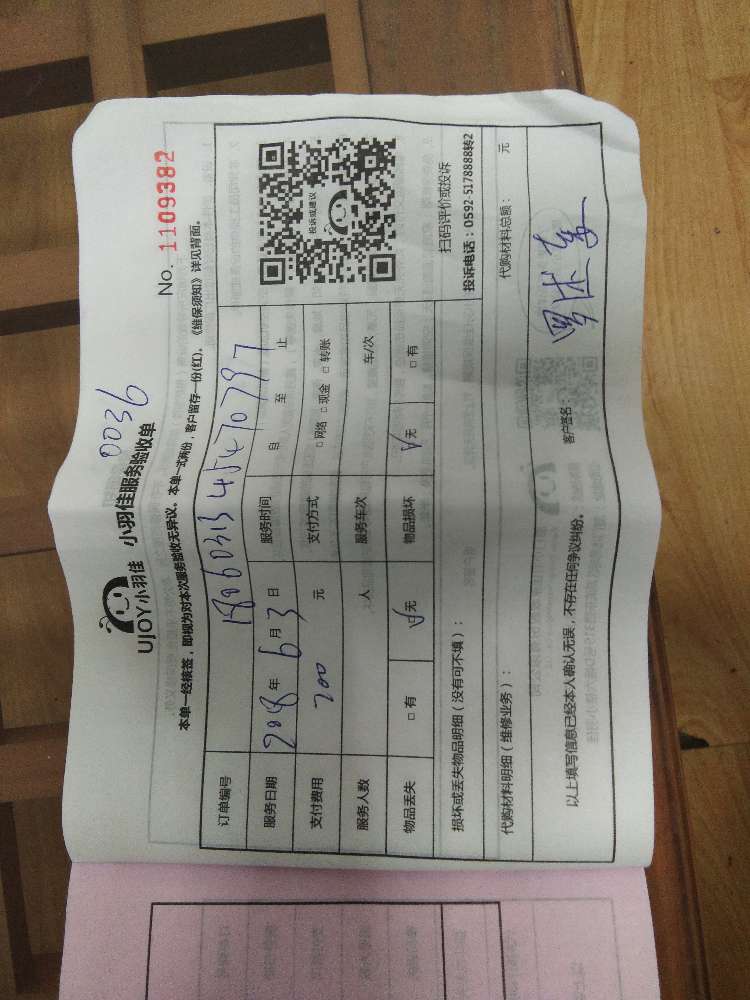 0036
No. 1109382
UJOY小羽佳 小羽佳服务验收单
本单一经核签，即视为对本次服务验收无异议。本单一式两份，客户留存一份(红)。《维保须知》详见背面。
订单编号
服务日期 2018 年 6 月 3 日 服务时间 自 至 止
支付费用 200 元 支付方式 □ 网络 □ 现金 □ 转账
服务人数 人 服务车次 车/次
物品丢失 □ 有 □ 无 物品损坏 □ 无 □ 有
投诉或建议
扫码评价或投诉
投诉电话：0592-5178888转2
损坏或丢失物品明细（没有可不填）：
代购材料明细（维修业务）： 代购材料总额： 元
以上填写信息已经本人确认无误，不存在任何争议纠纷。 客户签名：